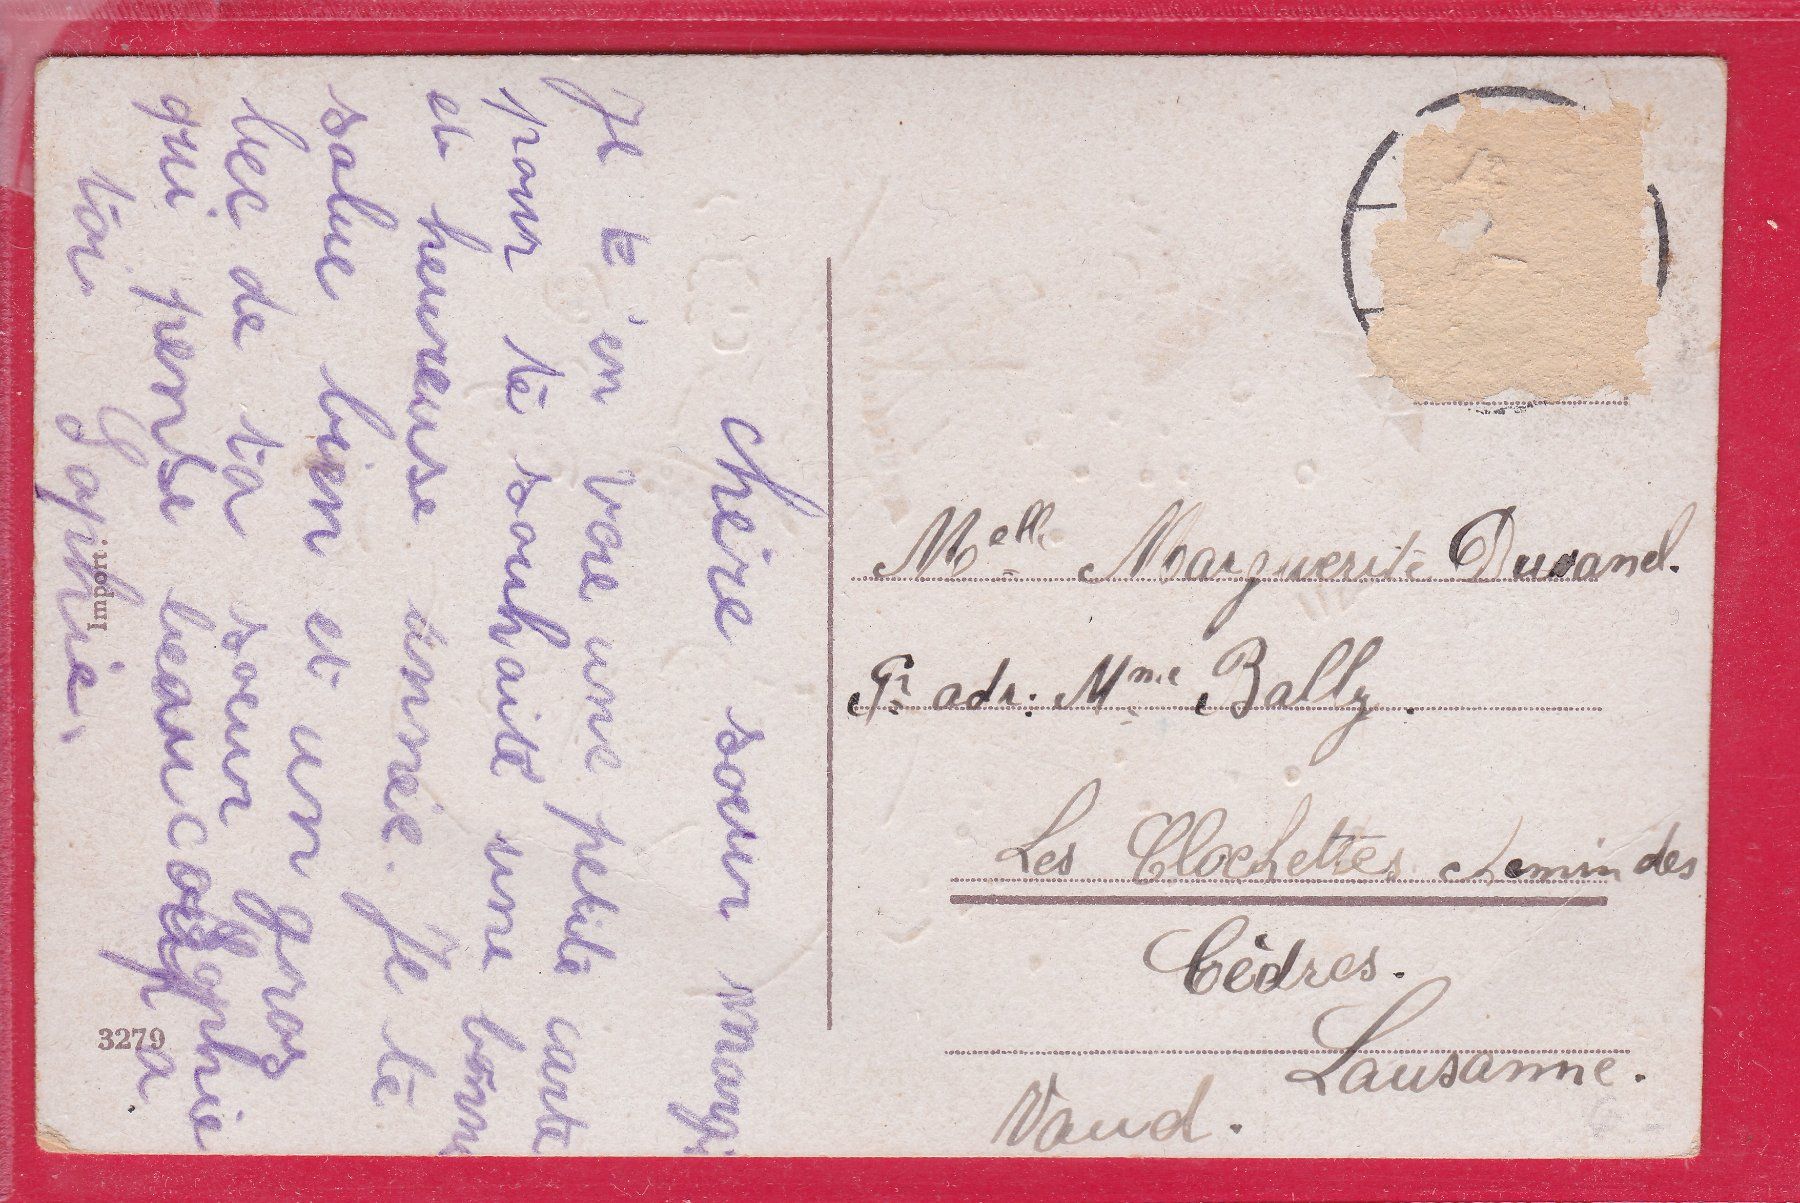 chère soeur mangi
Je t'en voie une petite carte
pour te souhaité une bonne
et heureuse année. Je te
salue bien et un gros
bec de ta soeur Sophie
qui pense beaucoup a
toi. Sophie.
Import.
3279
Melle Marguerite Durand.
Pr adr. Mme Bally.
Les Clochettes chemin des
Cèdres.
Lausanne.
Vaud.